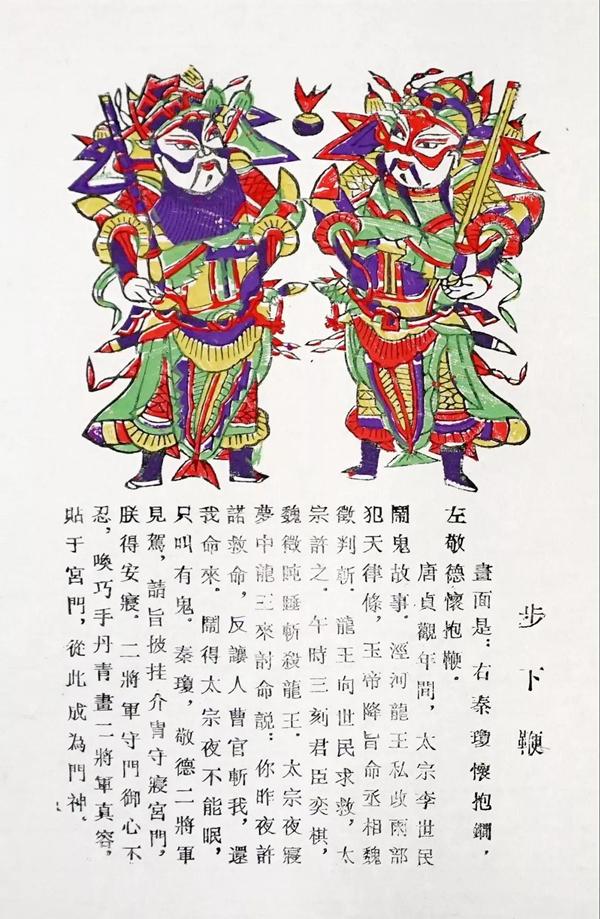 步下鞭
畫面是：右秦瓊懷抱鐧，
左敬德懷抱鞭.
唐貞觀年間，太宗李世民
鬧鬼故事. 涇河龍王私改雨部
犯天律條，玉帝降旨命丞相魏
徵判斬. 龍王向世民求救，太
宗許之. 午時三刻君臣奕棋，
魏徵盹睡斬殺龍王. 太宗夜寢
夢中龍王來討命説：你昨夜許
諾救命，反讓人曹官斬我，還
我命來. 鬧得太宗夜不能眠，
只叫有鬼. 秦瓊，敬德二將軍
見駕，請旨披挂介冑守寢宮門，
朕得安寢. 二將軍守門御心不
忍，喚巧手丹青畫二將軍真容，
貼于宮門，從此成為門神.